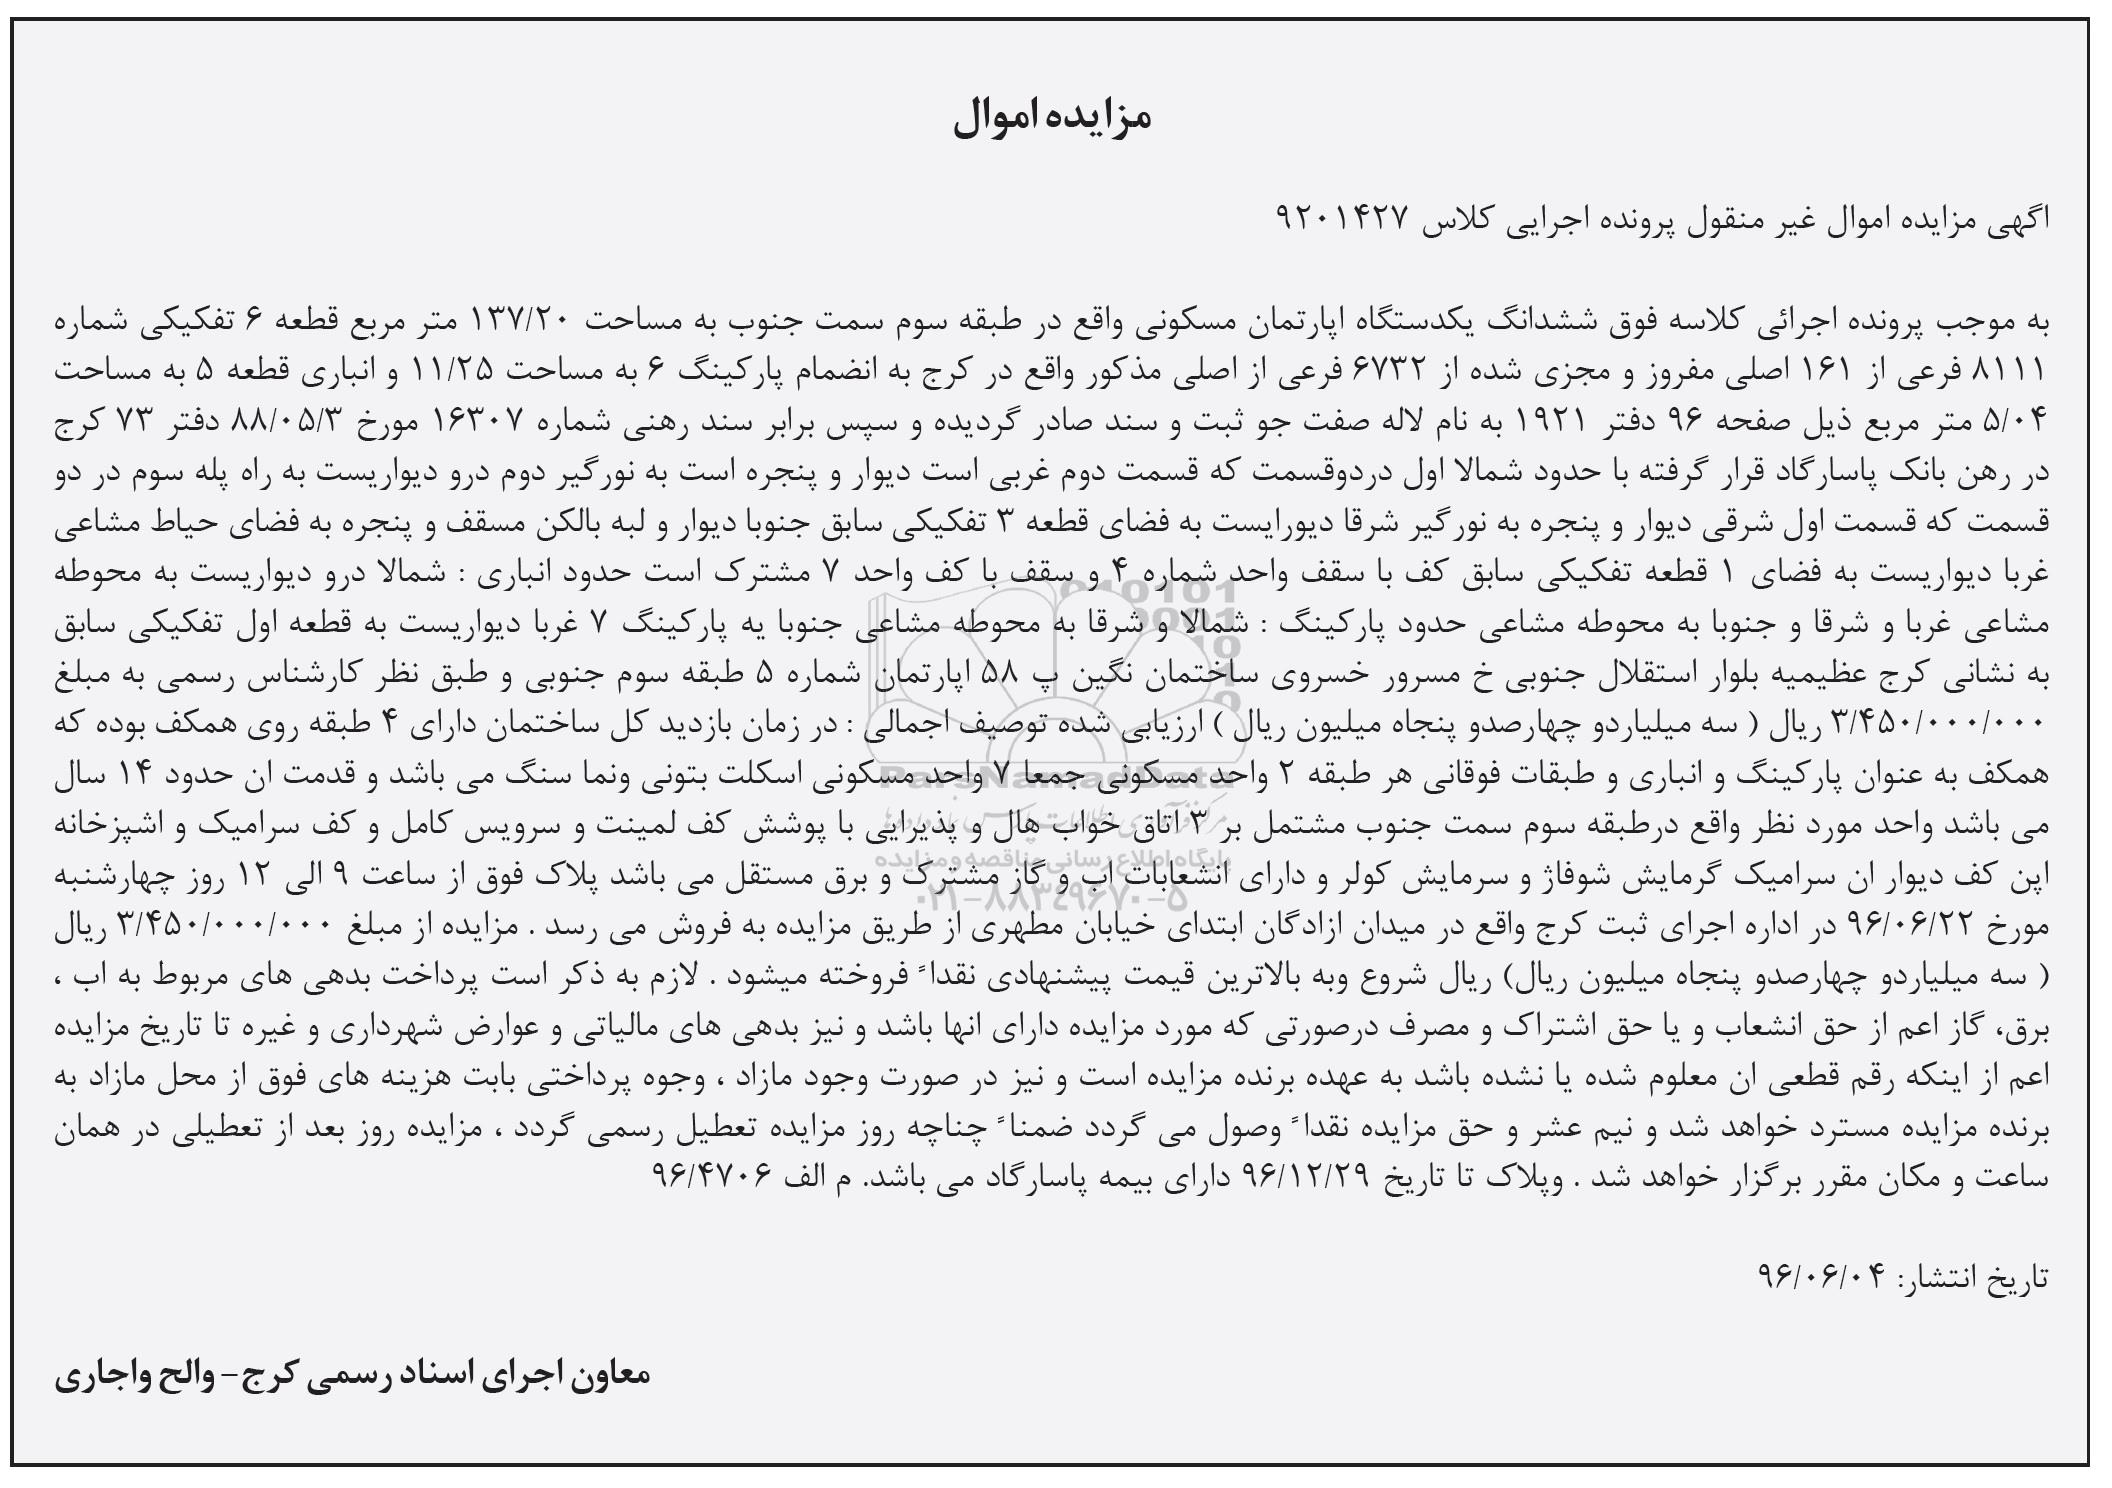 مزایده اموال
اگهی مزایده اموال غیر منقول پرونده اجرایی کلاس ۹۲۰۱۴۲۷
به موجب پرونده اجرائی کلاسه فوق ششدانگ یکدستگاه اپارتمان مسکونی واقع در طبقه سوم سمت جنوب به مساحت ۱۳۷/۲۰ متر مربع قطعه ۶ تفکیکی شماره
۸۱۱۱ فرعی از ۱۶۱ اصلی مفروز و مجزی شده از ۶۷۳۲ فرعی از اصلی مذکور واقع در کرج به انضمام پارکینگ ۶ به مساحت ۱۱/۲۵ و انباری قطعه ۵ به مساحت
۵/۰۴ متر مربع ذیل صفحه ۹۶ دفتر ۱۹۲۱ به نام لاله صفت جو ثبت و سند صادر گردیده و سپس برابر سند رهنی شماره ۱۶۳۰۷ مورخ ۸۸/۰۵/۳ دفتر ۷۳ کرج
در رهن بانک پاسارگاد قرار گرفته با حدود شمالا اول دردوقسمت که قسمت دوم غربی است دیوار و پنجره است به نورگیر دوم درو دیواریست به راه پله سوم در دو
قسمت که قسمت اول شرقی دیوار و پنجره به نورگیر شرقا دیورایست به فضای قطعه ۳ تفکیکی سابق جنوبا دیوار و لبه بالکن مسقف و پنجره به فضای حیاط مشاعی
غربا دیواریست به فضای ۱ قطعه تفکیکی سابق کف با سقف واحد شماره ۴ و سقف با کف واحد ۷ مشترک است حدود انباری : شمالا درو دیواریست به محوطه
مشاعی غربا و شرقا و جنوبا به محوطه مشاعی حدود پارکینگ : شمالا و شرقا به محوطه مشاعی جنوبا یه پارکینگ ۷ غربا دیواریست به قطعه اول تفکیکی سابق
به نشانی کرج عظیمیه بلوار استقلال جنوبی خ مسرور خسروی ساختمان نگین پ ۵۸ اپارتمان شماره ۵ طبقه سوم جنوبی و طبق نظر کارشناس رسمی به مبلغ
۳/۴۵۰/۰۰۰/۰۰۰ ریال ( سه میلیاردو چهارصدو پنجاه میلیون ریال ) ارزیابی شده توصیف اجمالی : در زمان بازدید کل ساختمان دارای ۴ طبقه روی همکف بوده که
همکف به عنوان پارکینگ و انباری و طبقات فوقانی هر طبقه ۲ واحد مسکونی جمعا ۷ واحد مسکونی اسکلت بتونی ونما سنگ می باشد و قدمت ان حدود ۱۴ سال
می باشد واحد مورد نظر واقع درطبقه سوم سمت جنوب مشتمل بر ۳ اتاق خواب هال و پذیرایی با پوشش کف لمینت و سرویس کامل و کف سرامیک و اشپزخانه
اپن کف دیوار ان سرامیک گرمایش شوفاژ و سرمایش کولر و دارای انشعابات اب و گاز مشترک و برق مستقل می باشد پلاک فوق از ساعت ۹ الی ۱۲ روز چهارشنبه
مورخ ۹۶/۰۶/۲۲ در اداره اجرای ثبت کرج واقع در میدان ازادگان ابتدای خیابان مطهری از طریق مزایده به فروش می رسد . مزایده از مبلغ ۳/۴۵۰/۰۰۰/۰۰۰ ریال
( سه میلیاردو چهارصدو پنجاه میلیون ریال) ریال شروع وبه بالاترین قیمت پیشنهادی نقدا ً فروخته میشود . لازم به ذکر است پرداخت بدهی های مربوط به اب ،
برق، گاز اعم از حق انشعاب و یا حق اشتراک و مصرف درصورتی که مورد مزایده دارای انها باشد و نیز بدهی های مالیاتی و عوارض شهرداری و غیره تا تاریخ مزایده
اعم از اینکه رقم قطعی ان معلوم شده یا نشده باشد به عهده برنده مزایده است و نیز در صورت وجود مازاد ، وجوه پرداختی بابت هزینه های فوق از محل مازاد به
برنده مزایده مسترد خواهد شد و نیم عشر و حق مزایده نقدا ً وصول می گردد ضمنا ً چناچه روز مزایده تعطیل رسمی گردد ، مزایده روز بعد از تعطیلی در همان
ساعت و مکان مقرر برگزار خواهد شد . وپلاک تا تاریخ ۹۶/۱۲/۲۹ دارای بیمه پاسارگاد می باشد. م الف ۹۶/۴۷۰۶
تاریخ انتشار: ۹۶/۰۶/۰۴
معاون اجرای اسناد رسمی کرج– والح واجاری
ParsNamadData
پایگاه اطلاع رسانی مناقصه و مزایده
۰۲۱–۸۸۳۴۹۶۷۰–۵